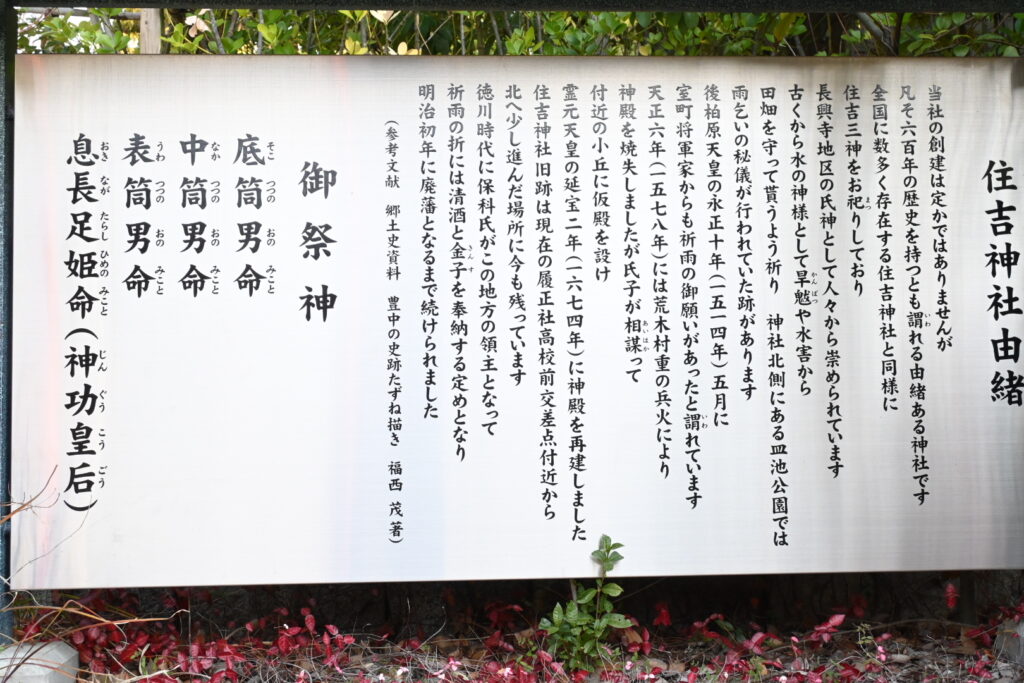 住吉神社由緒
当社の創建は定かではありませんが
凡そ六百年の歴史を持つとも謂れる由緒ある神社です
全国に数多く存在する住吉神社と同様に
住吉三神をお祀りしており
長興寺地区の氏神として人々から崇められています
古くから水の神様として旱魃や水害から
田畑を守って貰うよう祈り　神社北側にある皿池公園では
雨乞いの秘儀が行われていた跡があります
後柏原天皇の永正十年（一五一四年）五月に
室町将軍家からも祈雨の御願いがあったと謂れています
天正六年（一五七八年）には荒木村重の兵火により
神殿を焼失しましたが氏子が相謀って
付近の小丘に仮殿を設け
霊元天皇の延宝二年（一六七四年）に神殿を再建しました
住吉神社旧跡は現在の履正社高校前交差点付近から
北へ少し進んだ場所に今も残っています
徳川時代に保科氏がこの地方の領主となって
祈雨の折には清酒と金子を奉納する定めとなり
明治初年に廃藩となるまで続けられました
（参考文献　郷土史資料　豊中の史跡たずね描き　福西 茂著）
御祭神
底筒男命
中筒男命
表筒男命
息長足姫命（神功皇后）